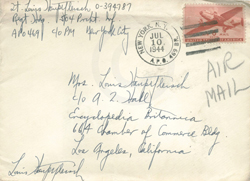 Lt. Louis Hauptfleisch, O-394987
804 Inf
APO 469 c/o PM New York City
NEW YORK, N.Y.
JUL
10
1944
A.P.O.
AIR
MAIL
Mrs. Louis Hauptfleisch
c/o A. Z. Hall
Encyclopedia Britannica
Chamber of Commerce Bldg.
Los Angeles, California
Louis Hauptfleisch